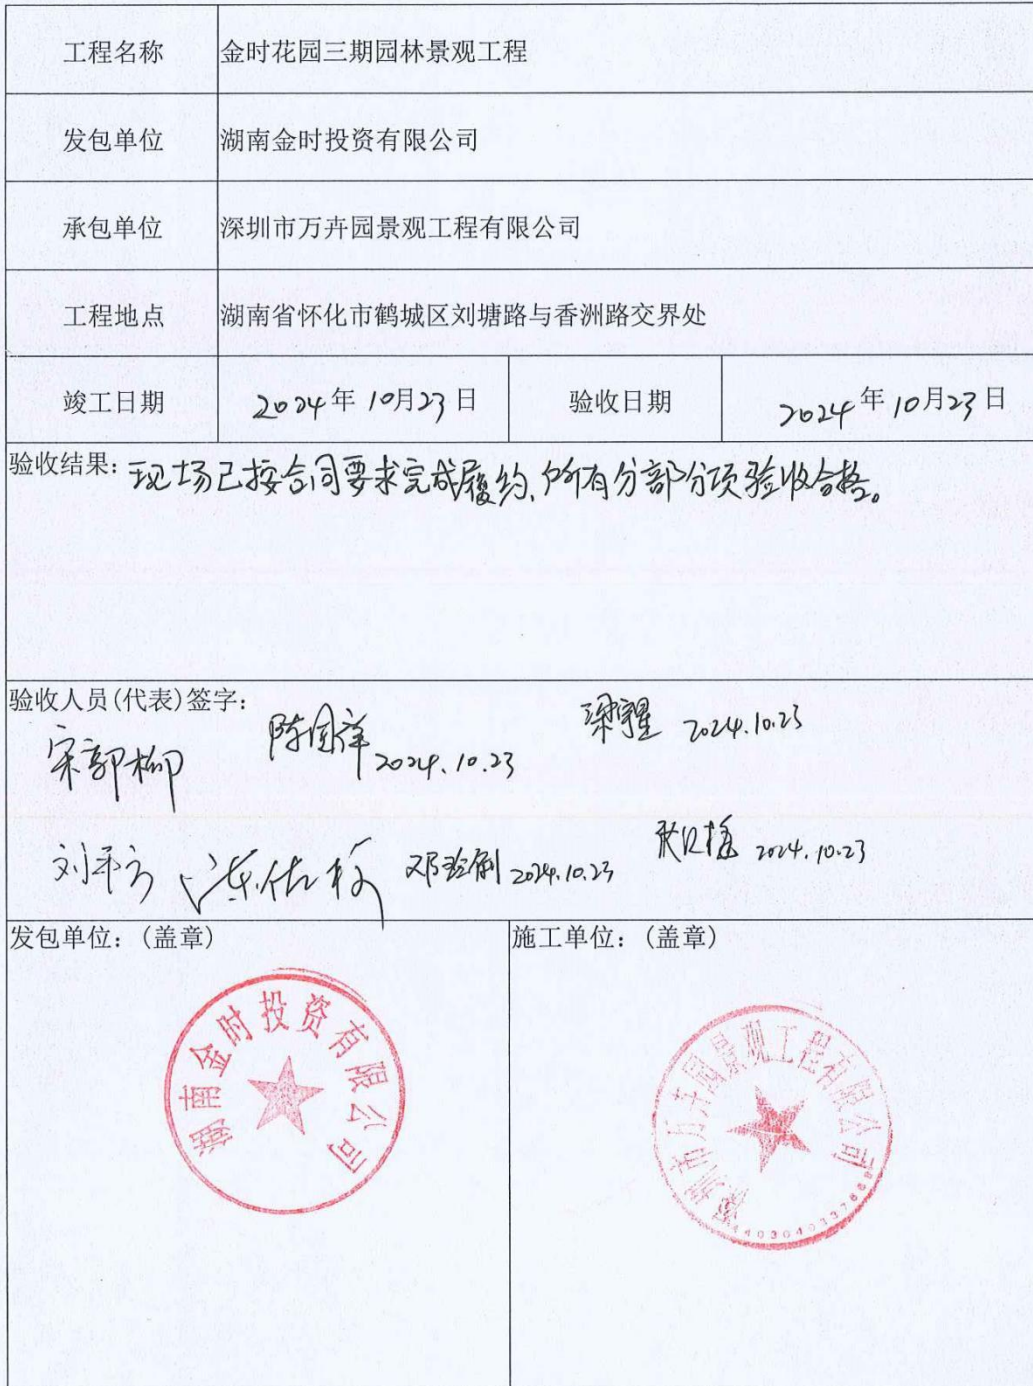 工程名称 金时花园三期园林景观工程
发包单位 湖南金时投资有限公司
承包单位 深圳市万卉园景观工程有限公司
工程地点 湖南省怀化市鹤城区刘塘路与香洲路交界处
竣工日期 2024年10月23日 验收日期 2024年10月23日
验收结果：现场已按合同要求完成履约,所有分部分项验收合格。
验收人员(代表)签字：
宋郭柳 陈国祥 2024.10.23 2024.10.23
2024.10.23 2024.10.23
发包单位：(盖章) 施工单位：(盖章)
湖南金时投资有限公司
深圳市万卉园景观工程有限公司